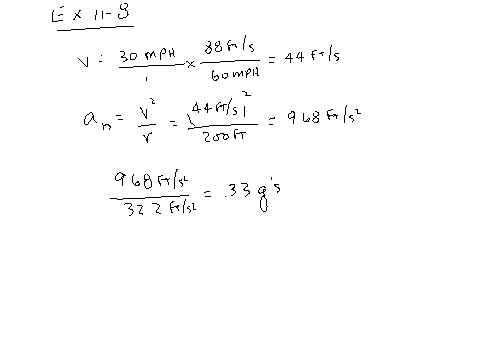 Ex 11-8
V = 30 MPH / 1 × 88 ft/s / 60 MPH = 44 ft/s
a_n = v² / r = (44 ft/s)² / 200 ft = 968 ft/s²
968 ft/s² / 322 ft/s² = .33 g's